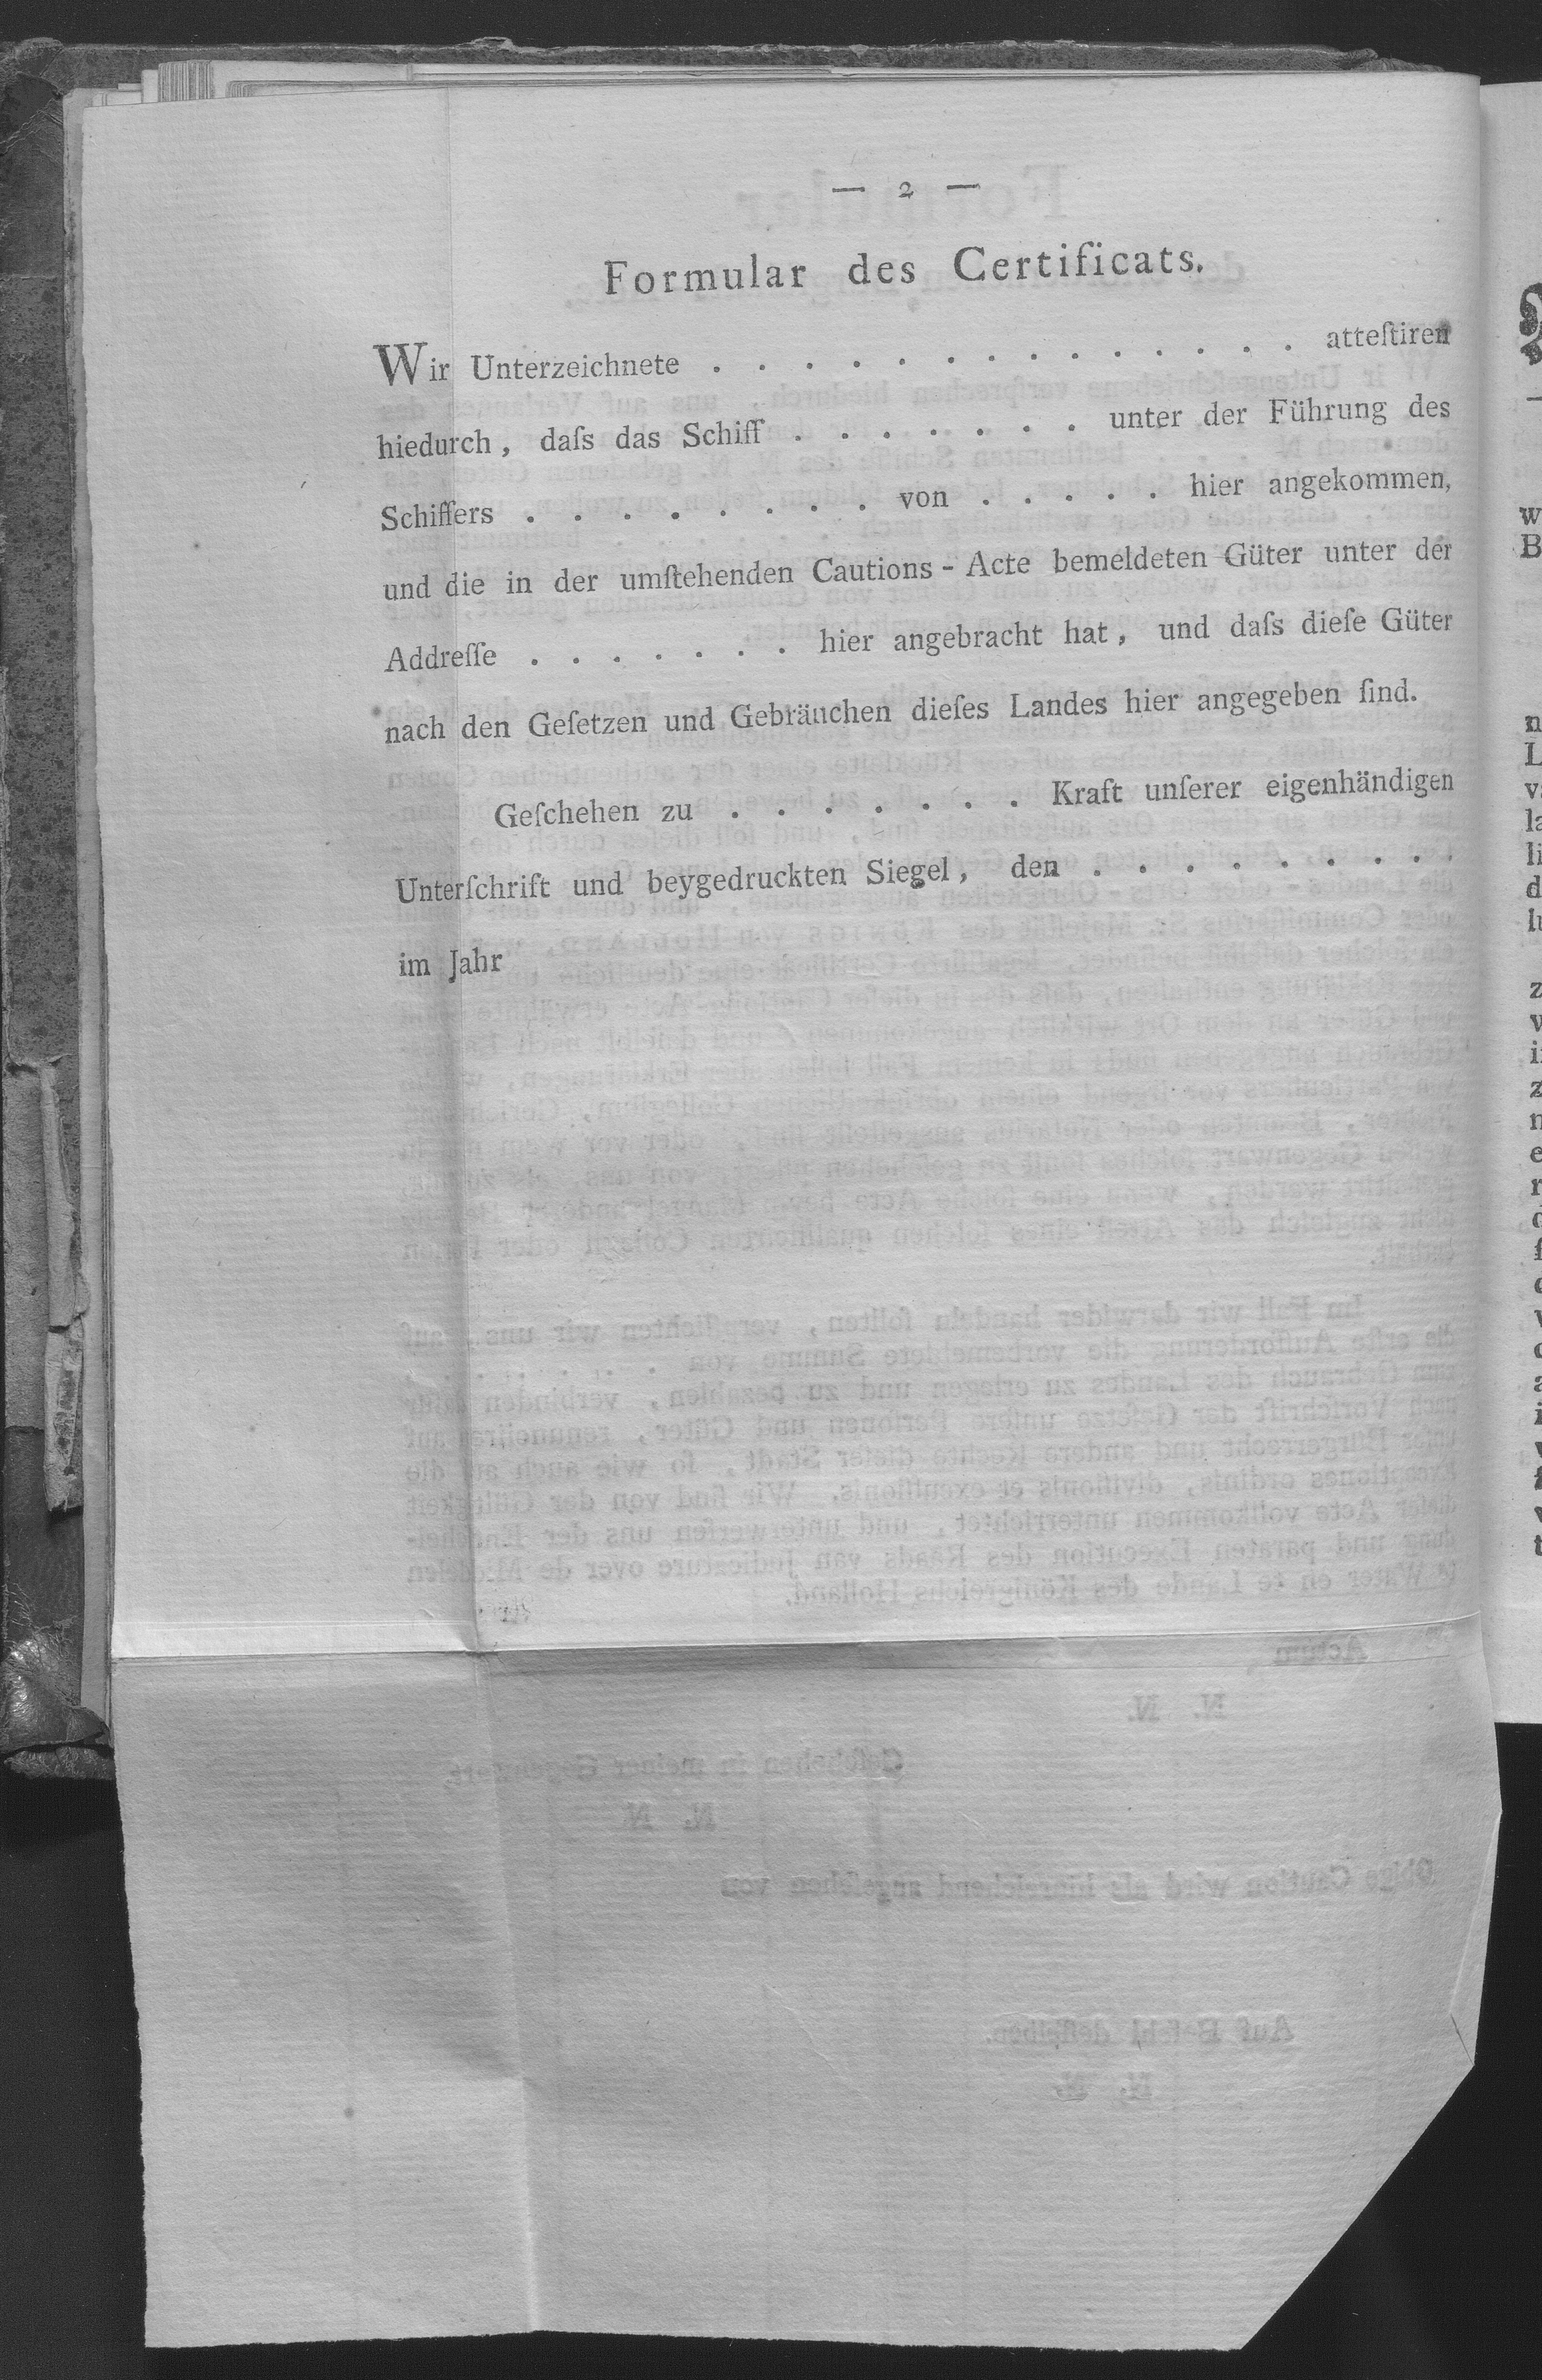 — 2 —
Formular des Certificats.
Wir Unterzeichnete . . . . . . . . . . . . . atteſtiren
hiedurch, daſs das Schiff . . . . . . . unter der Führung des
Schiffers . . . . . . . . von . . . . . hier angekommen,
und die in der umſtehenden Cautions - Acte bemeldeten Güter unter der
Addreſſe . . . . . . hier angebracht hat, und daſs dieſe Güter
nach den Geſetzen und Gebräuchen dieſes Landes hier angegeben ſind.
Geſchehen zu . . . . . . . Kraft unſerer eigenhändigen
Unterſchrift und beygedruckten Siegel, den . . . . . . . .
im Jahr